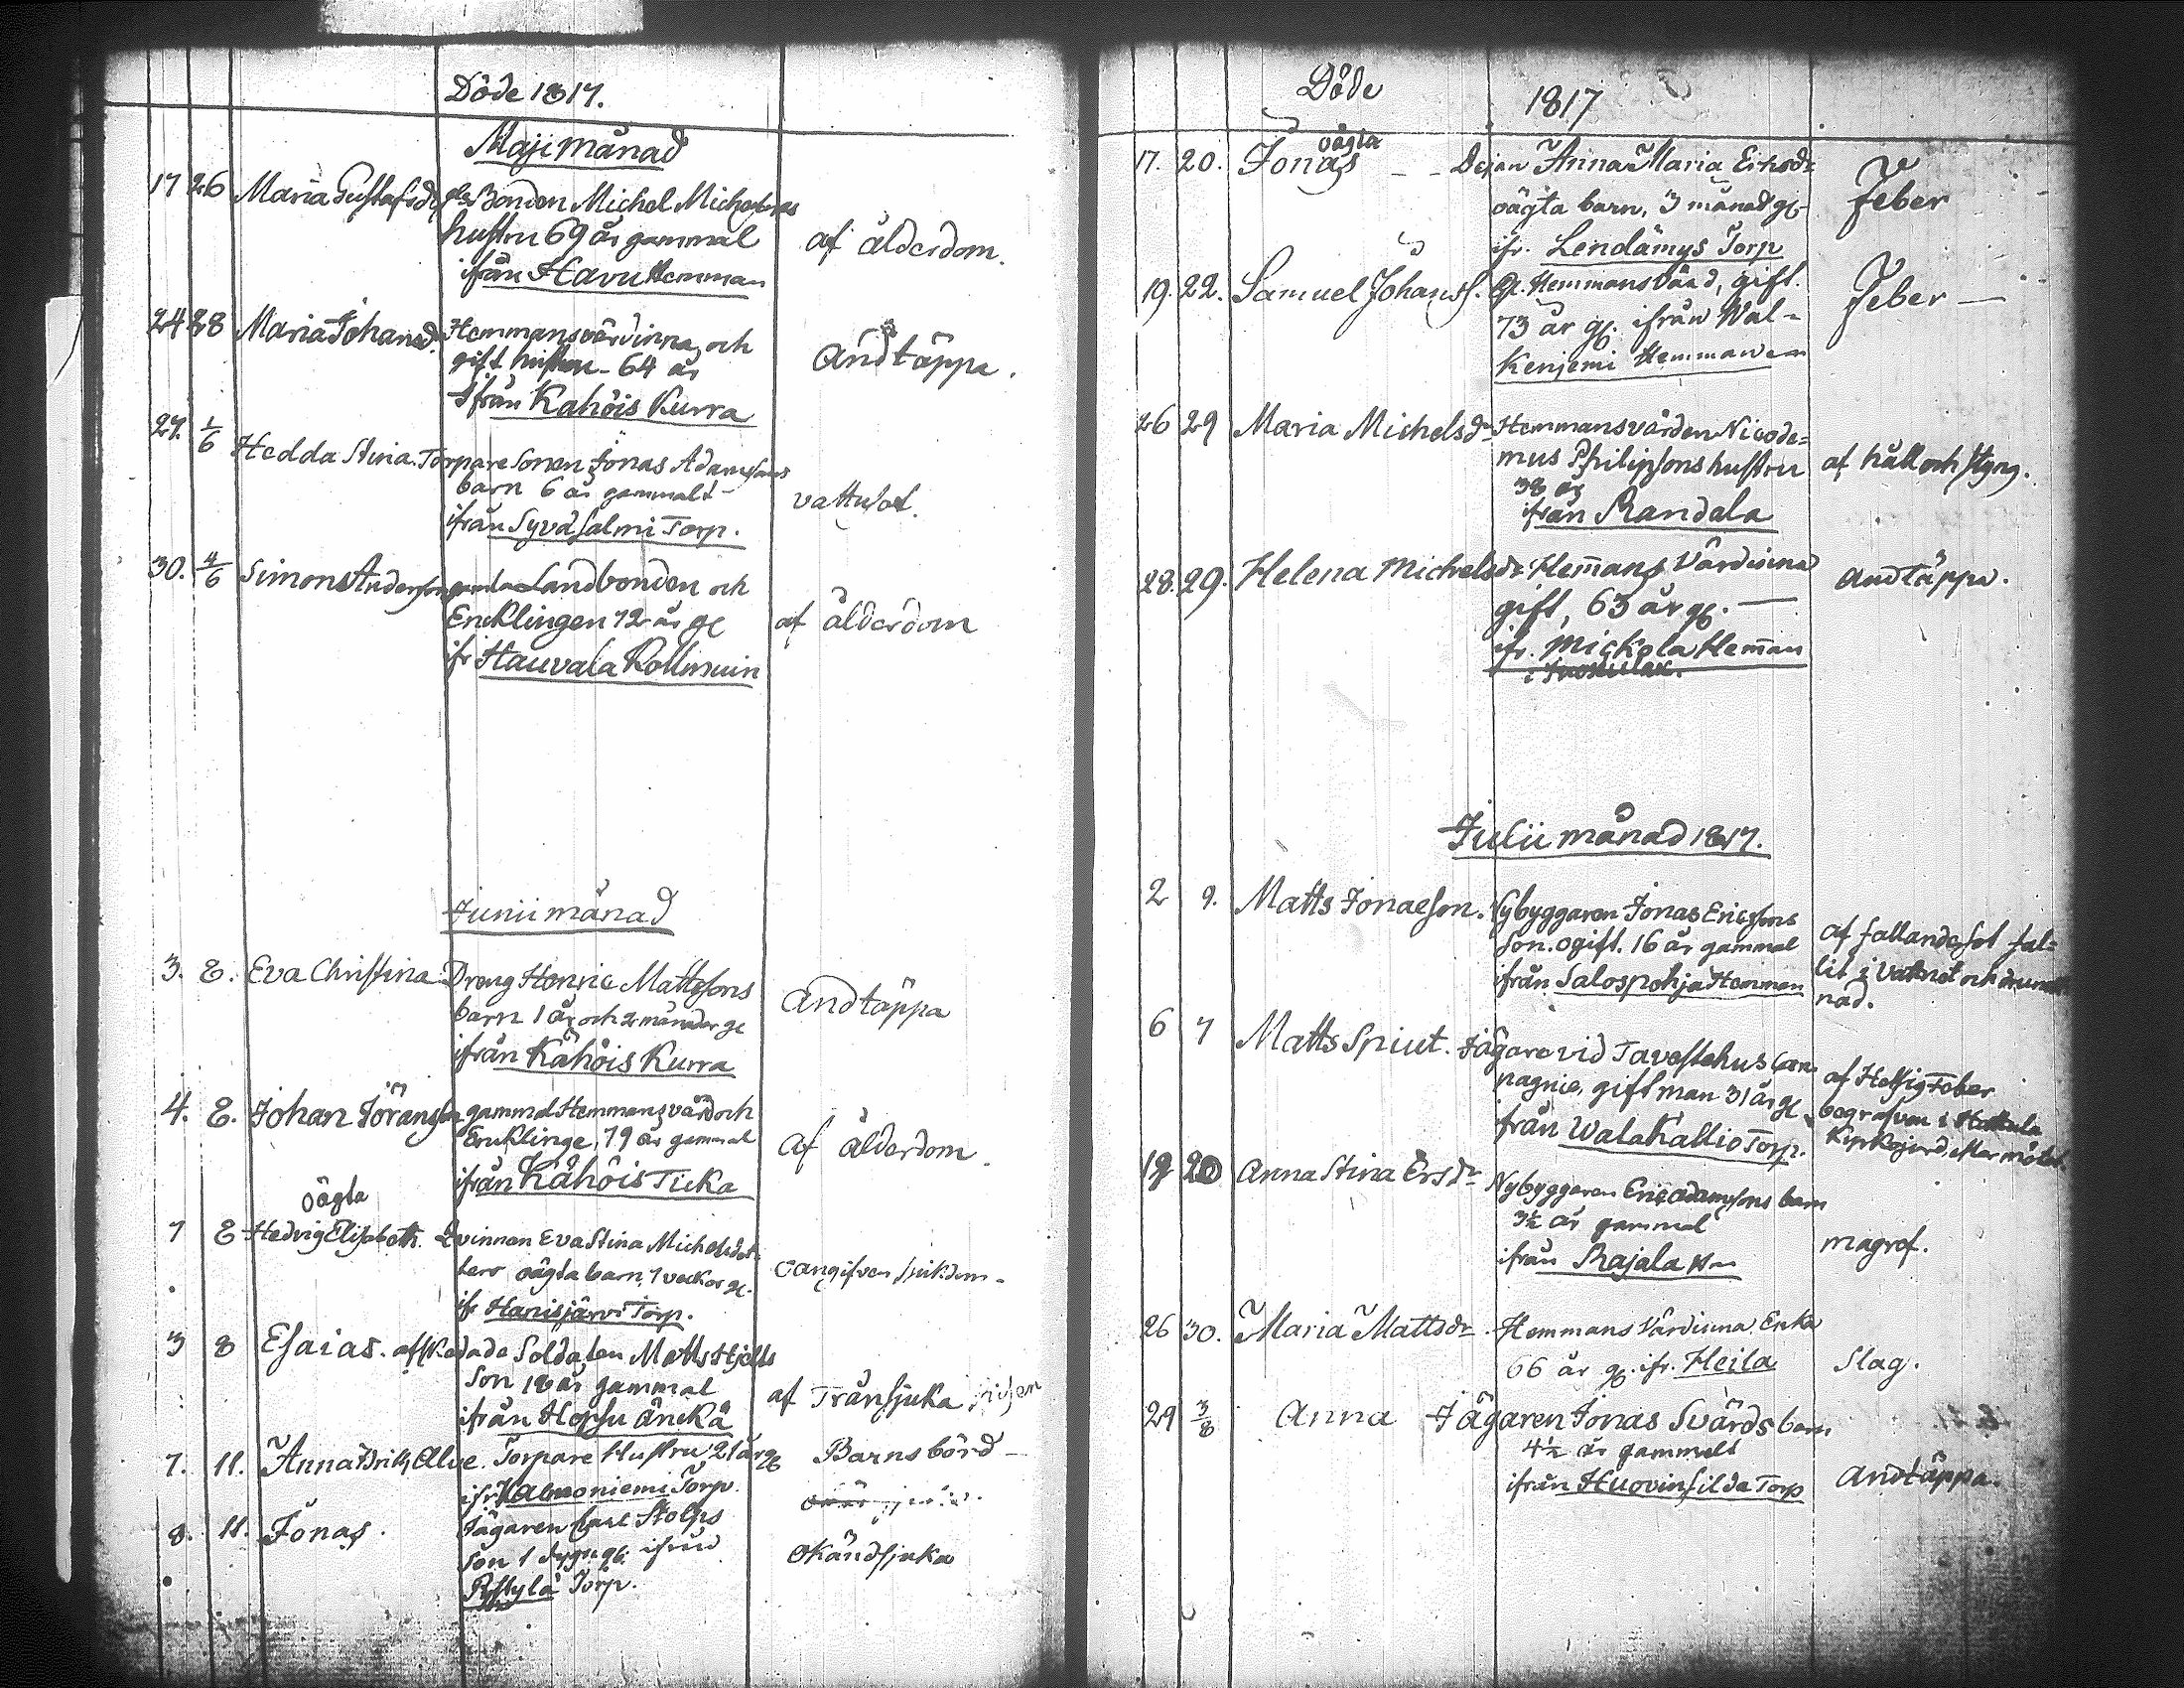 Döde 1817.
Maji månad
17 26 Maria Gustafsdr gla Bonden Michel Michelsons
hustru 69 år gammal
af ålderdom.
ifrån Havu Hemman
24 28 Maria Johansdr Hemmansvärdinna och
gift hustru - 64 år
andtäppa.
ifrån Kahöis Kurra
27. 1/6 Hedda Stina. Torpare Sonen Jonas Adamsons
barn 6 år gammalt -
vattusot.
ifrån Syvä Salmi Torp.
30. 4/6 Simon Anderson gamla Landbonden och
Encklingen 72 år gl
af ålderdom
ifr Hauvala Rollmuin
Junii månad
3. 8. Eva Christina. Dreng Henric Mattssons
barn 1 år och 2 månader gl
andtäppa
ifrån Kahöis Kurra
4. 8. Johan Jöranson gammal Hemmans värd och
Encklinge, 79 år gammal
af ålderdom.
ifrån Kåhöis Ticka
oägta
7 8 Hedvig Elisabeth. Qvinnan Eva Stina Michelsdot-
ters oägta barn, 7 veckor gl.
oangifven sjukdom.
ifr Hanisjärvi Torp.
3 8 Esaias. afskedade Soldaten Matts Hjelts
Son 18 år gammal
af Trånsjuka
ifrån Hopsu änckä
7. 11. Anna Brita Alve. Torpare Hustru, 21 år gl
Barnsbörd -
ifr. Kalmoniemi Torp.
8. 11. Jonas. Jägaren Carl Stolps
son 1 dygn gl. ifrån
Okänd sjuka
Torp.
Döde 1817
oägta
17. 20. Jonas - - Dejan Anna Maria Ersdr
oägta barn, 3 månad gl.
Feber
ifr. Lendämys Torp
19. 22. Samuel Johanss. Gl. Hemmans Värd, gift.
73 år gl. ifrån Wal-
Feber -
kenjemi Hemman
26 29 Maria Michelsdr Hemmansvärden Nicode-
mus Philipsons hustru
af håll och styng.
38 år
ifrån Randala
28. 29. Helena Michelsdr Hemans Värdinna
gift, 63 år gl. -
andtäppa.
ifr. Mickola Heman
i
Julii månad 1817.
2 9. Matts Jonaeson. Nybyggaren Jonas Ericssons
Son. ogift. 16 år gammal
ifrån Salospohja Hemman
af fallandesot fal-
lit i vatnet och drunk
nad.
6 7 Matts Spiut. Jägare vid Tavastehus Com
pagnie, gift man 31 år gl
från Walakallio Torp.
af Hetsig Feber
begrafven i
Kyrkogård efter mötet
19 20 Anna Stina Ersdr Nybyggaren Eric Adamsons barn
3½ år gammal
magrof.
ifrån Rajala
26 30. Maria Mattsdr. Hemmans Värdinna Enka
66 år gl. ifr. Heila
Slag.
29 3/8 Anna Jägaren Jonas Svärds barn
4½ år gammalt
ifrån Huovinsilda Torp
andtäppa.